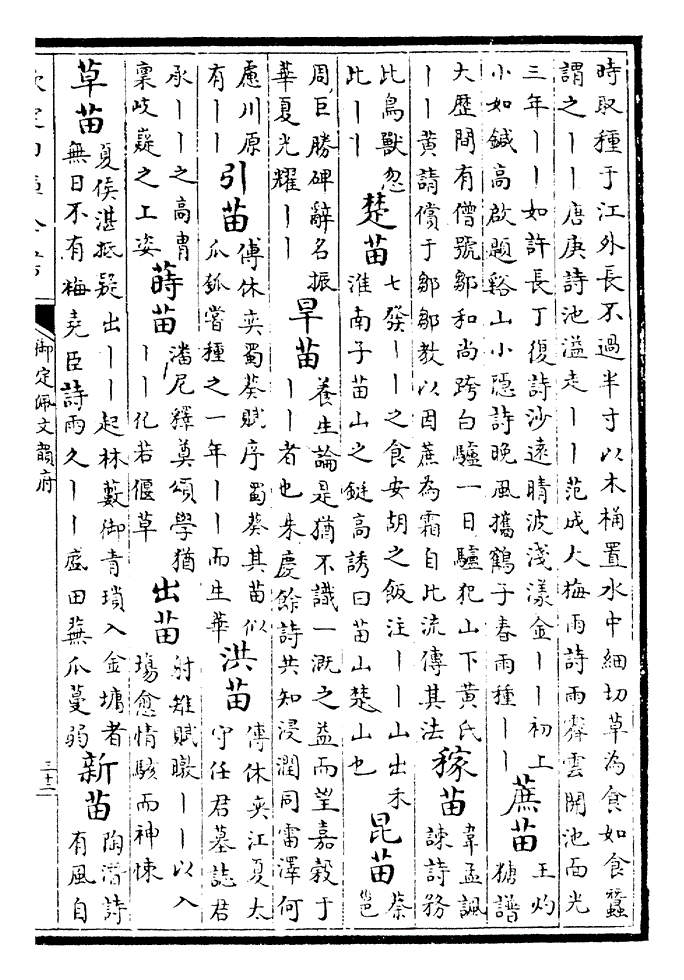 時取種于江外長不過半寸以木桶置水中細切草為食如食蠶
謂之丨丨唐庚詩池溢走丨丨范成大梅雨詩雨霽雲開池面光
三年丨丨如許長丁復詩沙遠晴波淺漾金丨丨初上
小如鍼高啟題谿山小隱詩晚風攜鶴子春雨種丨丨
蔗苗
王灼
糖譜
大歷間有僧號鄒和尚跨白驢一日驢犯山下黃氏
丨丨黃請償于鄒鄒教以因蔗為霜自此流傳其法
稼苗
韋孟諷
諫詩務
此鳥獸忽
此丨丨
楚苗
七發丨丨之食安胡之飯注丨丨山出禾
淮南子苗山之鋌高誘曰苗山楚山也
昆苗
蔡
邕
周巨勝碑辭名振
華夏光耀丨丨
旱苗
養生論是猶不識一溉之益而望嘉穀于
丨丨者也朱慶餘詩共知浸潤同雷澤何
慮川原
有丨丨
引苗
傅休奕蜀葵賦序蜀葵其苗似
瓜瓠嘗種之一年丨丨而生華
洪苗
傅休奕江夏太
守任君墓誌君
承丨丨之高胄
稟岐嶷之工姿
蒔苗
潘尼釋奠頌學猶
丨丨化若偃草
出苗
射雉賦瞰丨丨以入
場愈情駭而神悚
草苗
夏侯湛抵疑出丨丨起林藪御青瑣入金墉者
無日不有梅堯臣詩雨久丨丨盛田蕪瓜蔓弱
新苗
陶潛詩
有風自
欽定四庫全書
御定佩文韻府
三十三